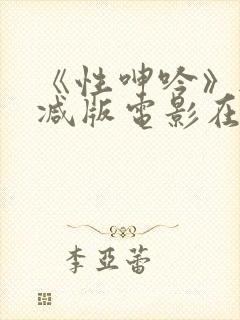 《性呻吟》
减版电影在
李亞蕾